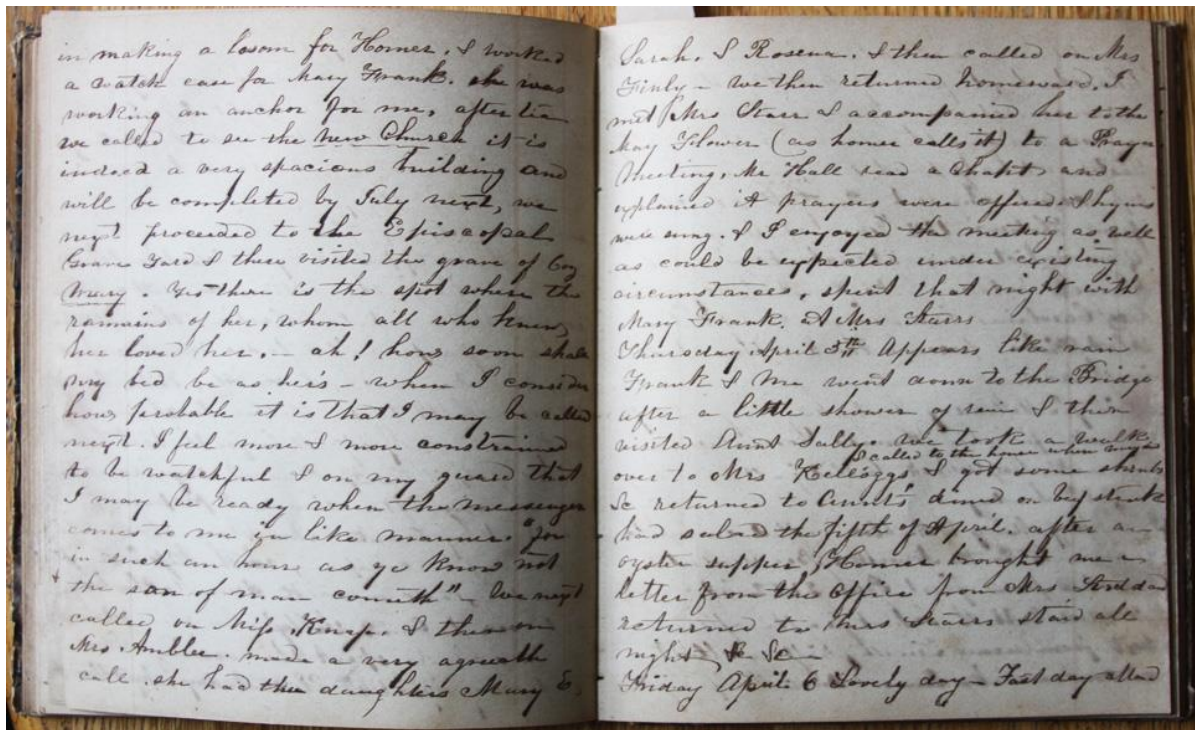 in making a bosom for Homer. I worked
a watch case for Mary Frank. she was
working an anchor for me, after tea
we called to see the new Church it is
indeed a very spacious building and
will be completed by July next, we
next proceeded to the Episcopal
Grave Yard & there visited the grave of
Mary. Yes there is the spot where the
remains of her, whom all who knew
her loved her. – ah! how soon shall
my bed be as her's – when I consider
how probable it is that I may be called
next. I feel more & more constrained
to be watchful & on my guard that
I may be ready when the messenger
comes to me in like manner. "for
in such an hour as ye know not
the son of man cometh" – We next
called on Miss Knap. & then on
Mrs. Ambler. made a very agreeabl
call. she had three daughters Mary E,
Sarah, & Rosena. I then called on Mrs
Finly – we then returned homeward, I
met Mrs Starr & accompanied her to the
May Flower (as homer calls it) to a Prayer
Meeting, Mr Hall read a Chapt. and
explained it prayers were offered & hymns
were sung. & I enjoyed the meeting as well
as could be expected under existing
circumstances, spent that night with
Mary Frank. At Mrs Starrs
Thursday April 5th Appears like rain
Frank & me went down to the Bridge
after a little shower of rain & then
visited Aunt Sally. we took a walk
& called to the house where
over to Mrs Kelloggs & got some shrubs
&c returned to Aunts dined on beef steak
had salad the fifth of April. after an
oyster supper, Homer brought me a
letter from the office from Mrs
returned to Mrs Starrs staid all
night &c &c –
Friday April 6 Lovely day – Fast day